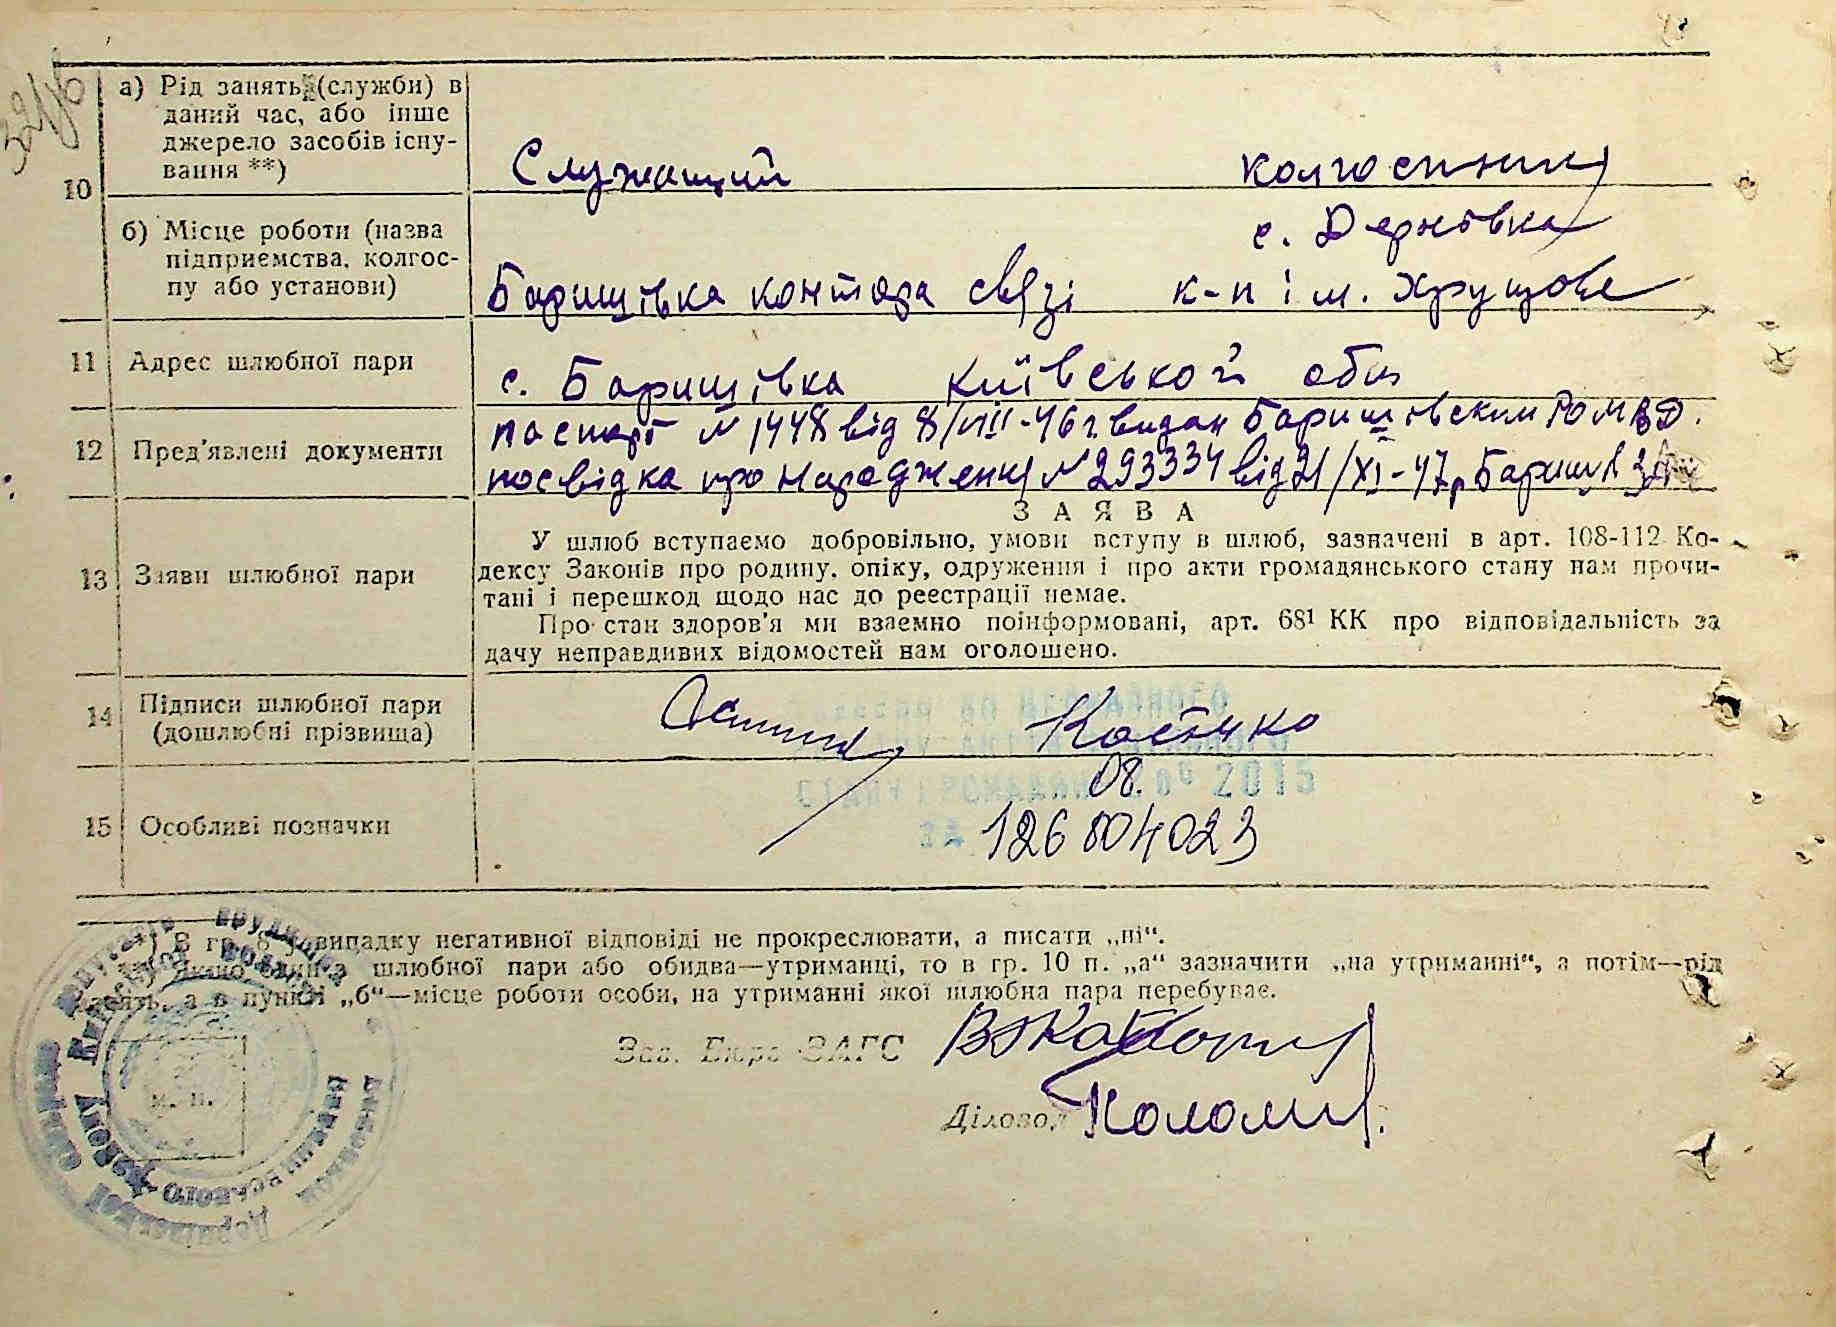 а) Рід занять (служби) в
даний час, або інше
джерело засобів існу-
вання **)
10
Служащий колгоспник
б) Місце роботи (назва
підприємства, колгос-
пу або установи)
с. Дернівка
Баришівка контора связі к-п ім. Хрущова
11 Адрес шлюбної пари
с. Баришівка Київської обл
12 Пред'явлені документи
паспорт № 1448 від 8/VIII-46 г. видан Баришівским РОМВД.
посвідка про народження № 293334 від 21/XI-47р
13 Заяви шлюбної пари
ЗАЯВА
У шлюб вступаємо добровільно, умови вступу в шлюб, зазначені в арт. 108-112 Ко-
дексу Законів про родину, опіку, одруження і про акти громадянського стану нам прочи-
тані і перешкод щодо нас до реєстрації немає.
Про стан здоров'я ми взаємно поінформовані, арт. 68¹ КК про відповідальність за
дачу неправдивих відомостей нам оголошено.
14 Підписи шлюбної пари
(дошлюбні прізвища)
Костько
15 Особливі позначки
08.
2015
126004023
*) В гр. 8 у випадку негативної відповіді не прокреслювати, а писати „ні“.
**) Якщо один з шлюбної пари або обидва—утриманці, то в гр. 10 п. „а“ зазначити „на утриманні“, а потім—рід
занять, а в пункті „б“—місце роботи особи, на утриманні якої шлюбна пара перебуває.
Зав. Бюро ЗАГС
Діловод
м. п.